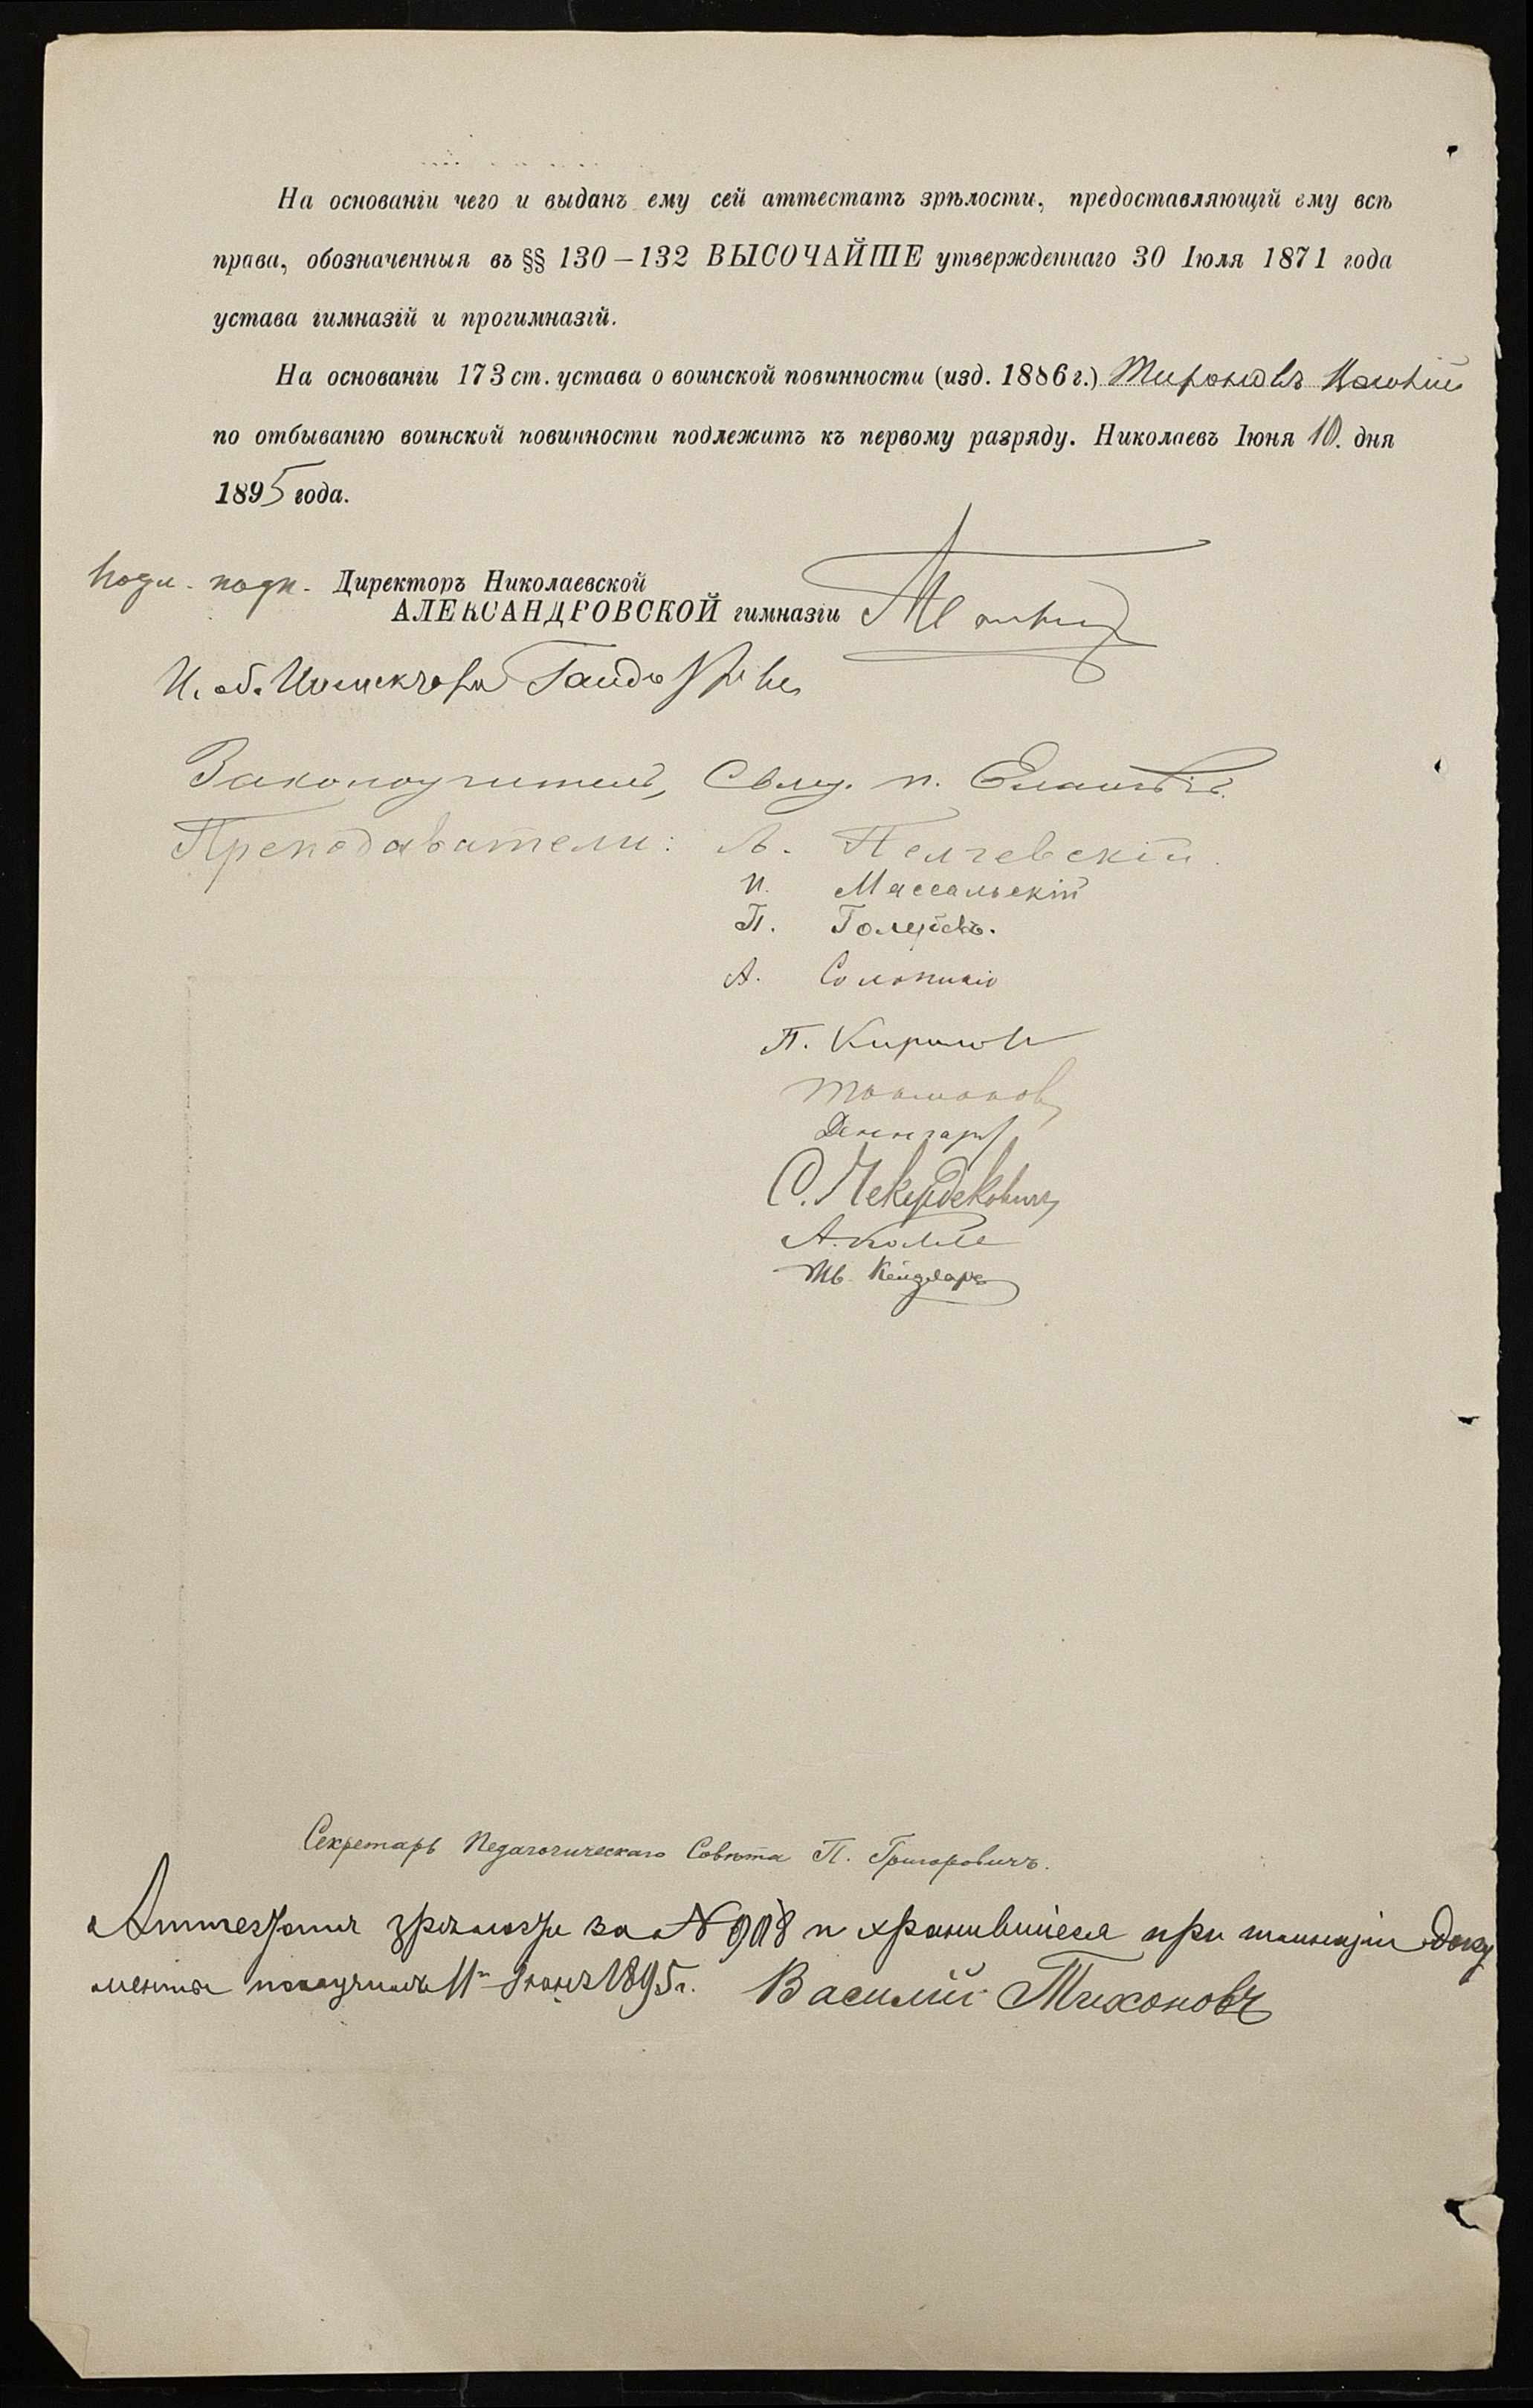 На основаніи чего и выданъ ему сей аттестатъ зрѣлости, предоставляющій ему всѣ
права, обозначенныя въ §§ 130—132 ВЫСОЧАЙШЕ утвержденнаго 30 Іюля 1871 года
устава гимназій и прогимназій.
На основаніи 173 ст. устава о воинской повинности (изд. 1886 г.)
по отбыванію воинской повинности подлежитъ къ первому разряду. Николаевъ Іюня 10. дня
1895 года.
подп. Директоръ Николаевской
АЛЕКСАНДРОВСКОЙ гимназіи
И. об. Инспектора
Законоучитель, Свящ. п.
Преподаватели: Пелчевскій.
И. Массальскій
П. Голубевъ.
А.
П.
С.
А. Колле
Секретарь Педагогическаго Совѣта П. Григоровичъ.
Аттестатъ зрѣлости за № 908 и хранившіеся при гимназіи доку
менты получилъ 11 Іюня 1895 г. Василій Тихоновъ